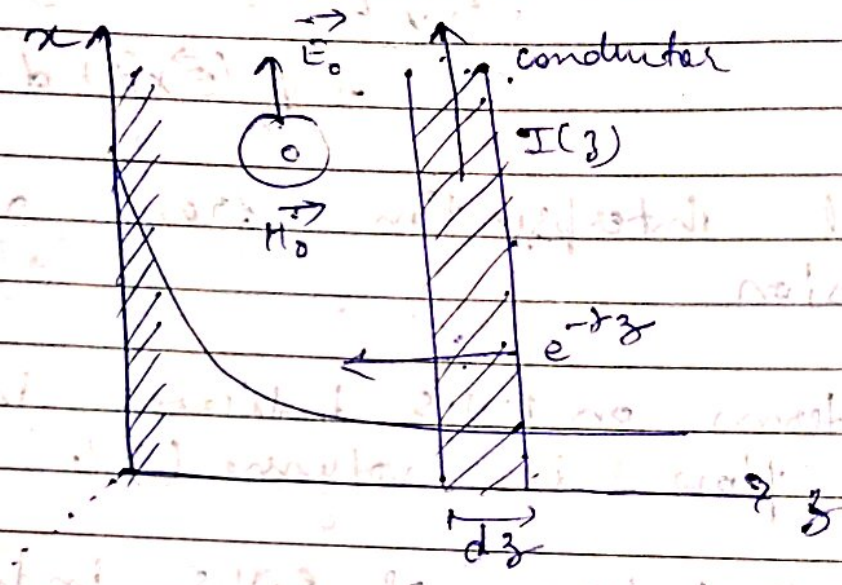 x
E₀
conductor
I(z)
H₀
e^{-γz}
z
dz